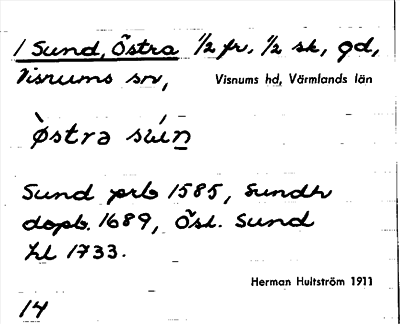 / Sund, Östra 1/2 fr. 1/2 sk, gd,
Visnums sn,
Visnums hd, Värmlands län
östra sun
Sund prb 1585, Sundh
dopb. 1689, Öst. Sund
hl 1733.
Herman Hultström 1911
14